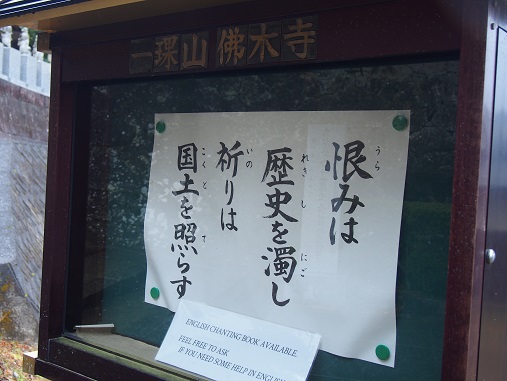 一環山 佛木寺
恨みは
うら
歴史を濁し
れきし にご
祈りは
いの
国土を照らす
こくど て
ENGLISH CHANTING BOOK AVAILABLE.
FEEL FREE TO ASK
IF YOU NEED SOME HELP IN ENGLISH